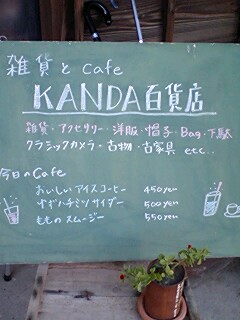 雑貨と Cafe
KANDA百貨店
雑貨・アクセサリー・洋服・帽子・Bag・下駄
クラシックカメラ・古物・古家具 etc..
今日のCafe
おいしいアイスコーヒー 450yen
ゆずハチミツサイダー 500yen
もものスムージー 550yen